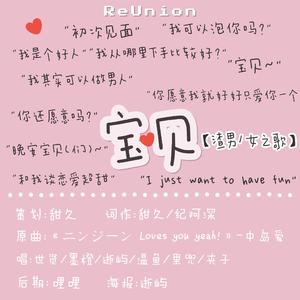 ReUnion
"初次见面" "我可以泡你吗?"
"我是个好人" "我从哪里下手比较好?"
"宝贝~"
"我其实可以做男人"
"你愿意我就好好只爱你一个"
"你还愿意吗?"
宝贝
【渣男/女之歌】
"晚安宝贝(们)~"
"和我谈恋爱超甜" "I just want to have fun"
策划:甜久 词作:甜久/纪何深
原曲:《ニンジーン Loves you yeah!》-中岛爱
唱:世贤/墨橙/逝屿/温鱼/里咒/夹子
后期:哩哩 海报:逝屿